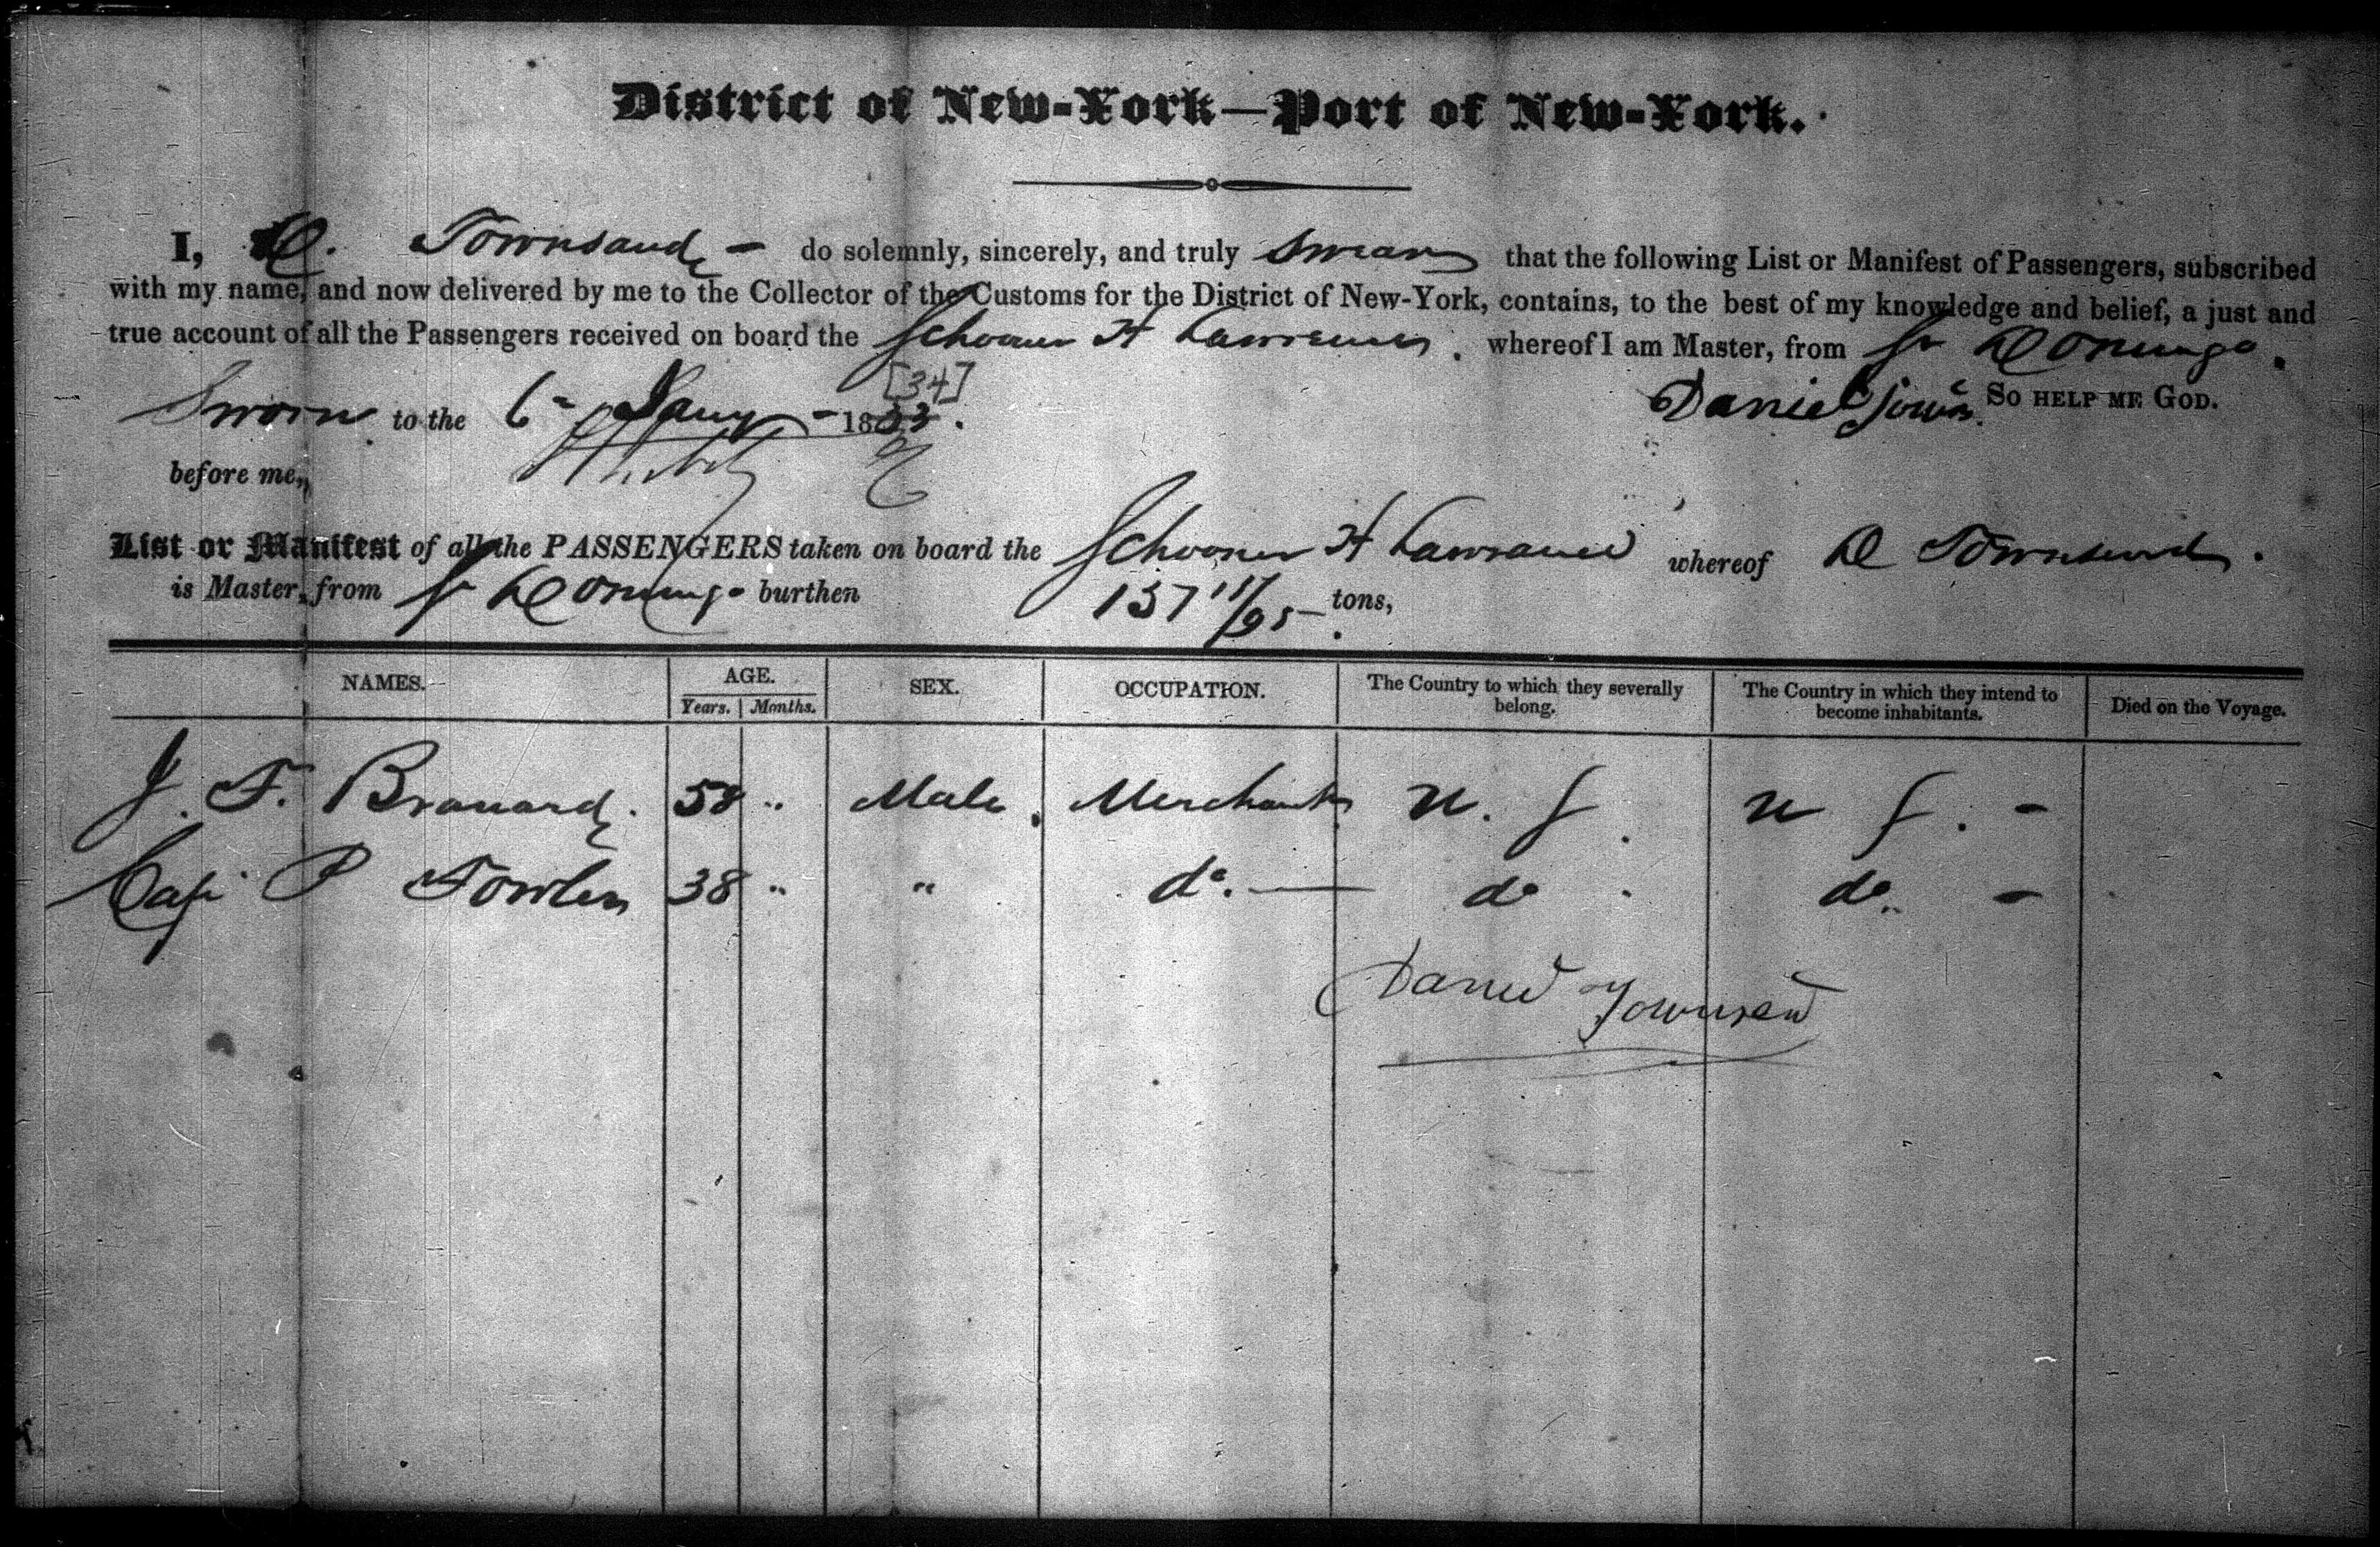 District of New-York—Port of New-York.
I, D. Townsand do solemnly, sincerely, and truly Swear that the following List or Manifest of Passengers, subscribed
with my name, and now delivered by me to the Collector of the Customs for the District of New-York, contains, to the best of my knowledge and belief, a just and
true account of all the Passengers received on board the Schooner H Lawrence, whereof I am Master, from St Domingo.
[34]
Sworn to the 6 Jany 1833. Daniel Towns. SO HELP ME GOD.
before me,
List or Manifest of all the PASSENGERS taken on board the Schooner H Lawrance whereof D Townsend.
is Master, from St Domingo burthen 137 11/95 tons,
NAMES. AGE. SEX. OCCUPATION. The Country to which they severally belong. The Country in which they intend to become inhabitants. Died on the Voyage.
Years. Months.
J. F. Brouard. 58 " Male. Merchant U. S. U S. -
Capt P Fowler 38 " " do. — do do. -
Daniel Townsend